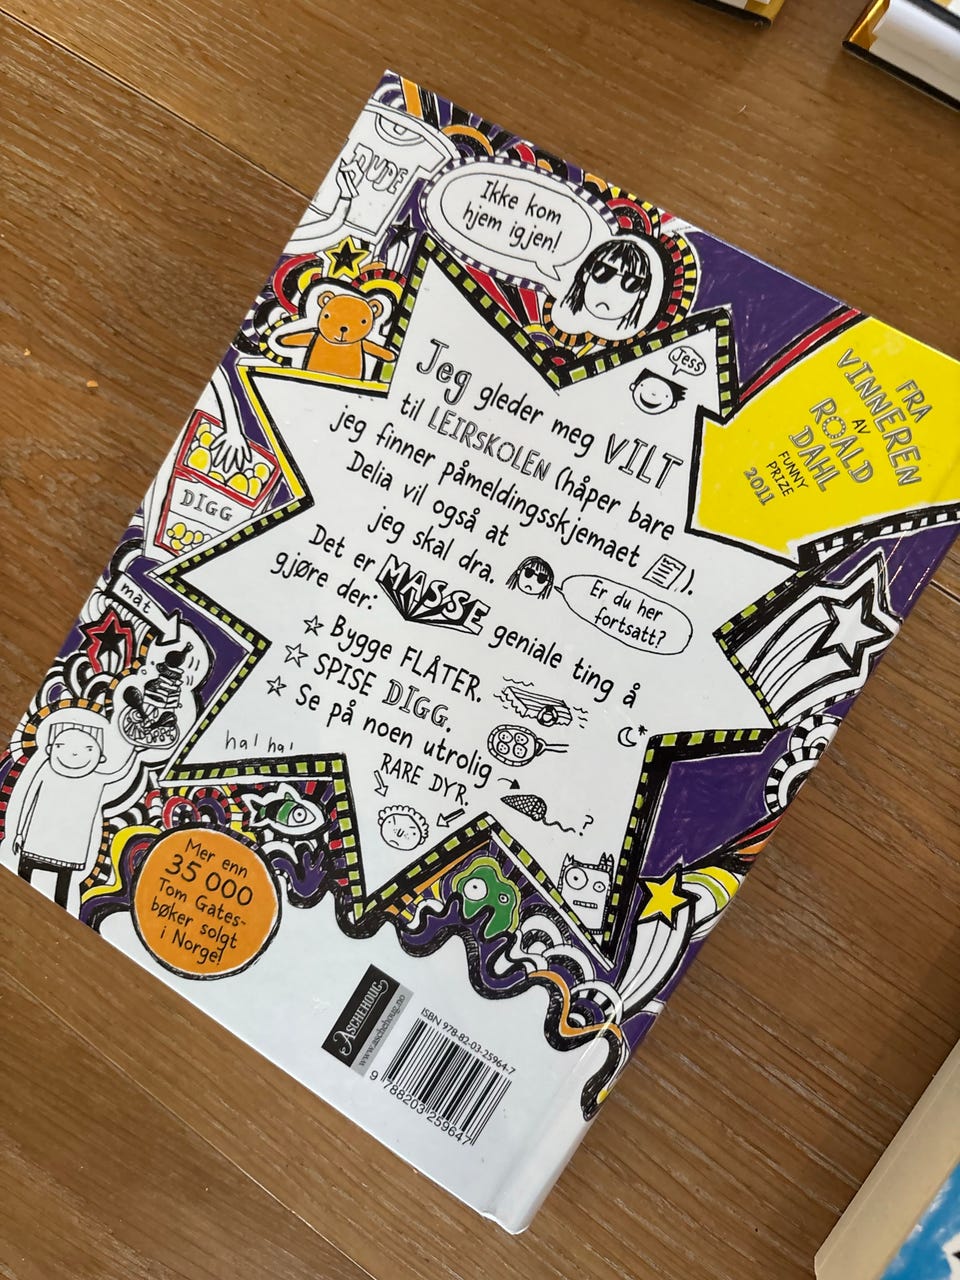 DUDE
Ikke kom
hjem igjen!
Jess
FRA
VINNEREN
AV
ROALD
DAHL
FUNNY
PRIZE
2011
Jeg gleder meg VILT
til LEIRSKOLEN (håper bare
jeg finner påmeldingsskjemaet ).
Delia vil også at
jeg skal dra.
Er du her
fortsatt?
Det er MASSE geniale ting å
gjøre der:
☆ Bygge FLÅTER.
☆ SPISE DIGG.
☆ Se på noen utrolig
RARE DYR.
?
DIGG
mat
ha! ha!
Mer enn
35 000
Tom Gates-
bøker solgt
i Norge!
ASCHEHOUG
www.aschehoug.no
ISBN 978-82-03-25964-7
9 788203 259647